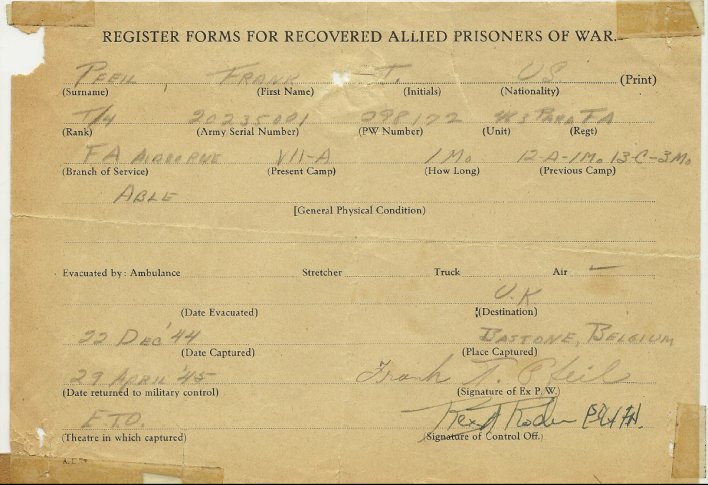 REGISTER FORMS FOR RECOVERED ALLIED PRISONERS OF WAR.
PFEIL FRANK T. US (Print)
(Surname) (First Name) (Initials) (Nationality)
T/4 20235091 298172 PARA FA
(Rank) (Army Serial Number) (PW Number) (Unit) (Regt)
FA AIRBORNE VII-A 1 MO 12-A-1MO 13-C-3MO
(Branch of Service) (Present Camp) (How Long) (Previous Camp)
ABLE
[General Physical Condition)
Evacuated by: Ambulance Stretcher Truck Air —
U.K
(Date Evacuated) (Destination)
22 DEC '44 BASTONE, BELGIUM
(Date Captured) (Place Captured)
29 APRIL '45 Frank T. Pfeil
(Date returned to military control) (Signature of Ex P.W.)
ETO.
(Theatre in which captured) (Signature of Control Off.)